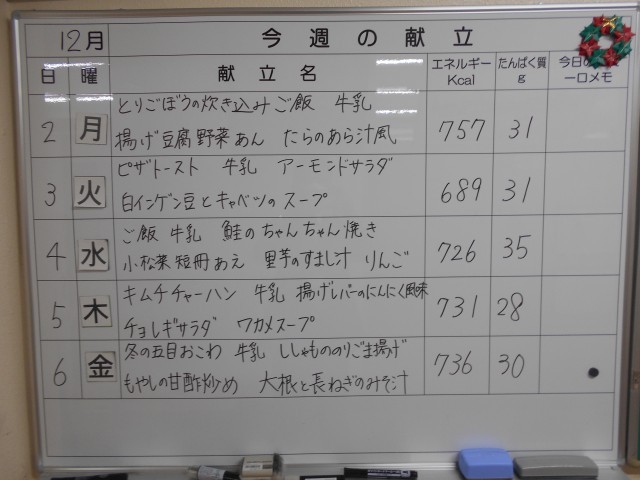 12月 今週の献立
日 曜 献立名 エネルギー Kcal たんぱく質 g 今日の 一口メモ
2 月 とりごぼうの炊き込みご飯 牛乳
揚げ豆腐野菜あん たらのあら汁風 757 31
3 火 ピザトースト 牛乳 アーモンドサラダ
白インゲン豆とキャベツのスープ 689 31
4 水 ご飯 牛乳 鮭のちゃんちゃん焼き
小松菜短冊あえ 里芋のすまし汁 りんご 726 35
5 木 キムチチャーハン 牛乳 揚げレバーのにんにく風味
チョレギサラダ ワカメスープ 731 28
6 金 冬の五目おこわ 牛乳 ししゃものりごま揚げ
もやしの甘酢炒め 大根と長ねぎのみそ汁 736 30